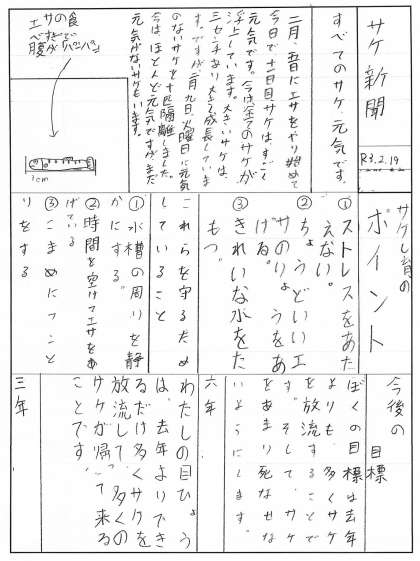 サケ新聞
R3.2.19
すべてのサケ、元気です。
二月、五日にエサをやり始めて
今日で十一日目、サケは、すごく
元気です。今は全てのサケが
浮上しています。大きいサケは、
三センチ大きく成長していま
す。ですが、二月九日、火曜日に元気
のないサケを十匹隔離しました。
今は、ほとんど元気ですがまだ
元気がないサケもいます。
エサの食
べすぎで
腹がパンパン
1cm
サケし育の
ポイント
①ストレスをあた
えない。
②ちょうどいいエ
サのりょうをあ
げる。
③きれいな水をた
もつ。
これらを守るため
していること
①水槽の周りを静
かにする。
②時間を空けてエサをあ
げている
③こまめにフンと
りをする
今後の目標
ぼくの目標は去年
よりも、多くサケ
を放流することで
す。そして、サケ
をあまり死なせな
いようにします。
六年
わたしの目ひょう
は、去年よりでき
るだけ多くサケを
放流して、多くの
サケが帰って来る
ことです。
三年